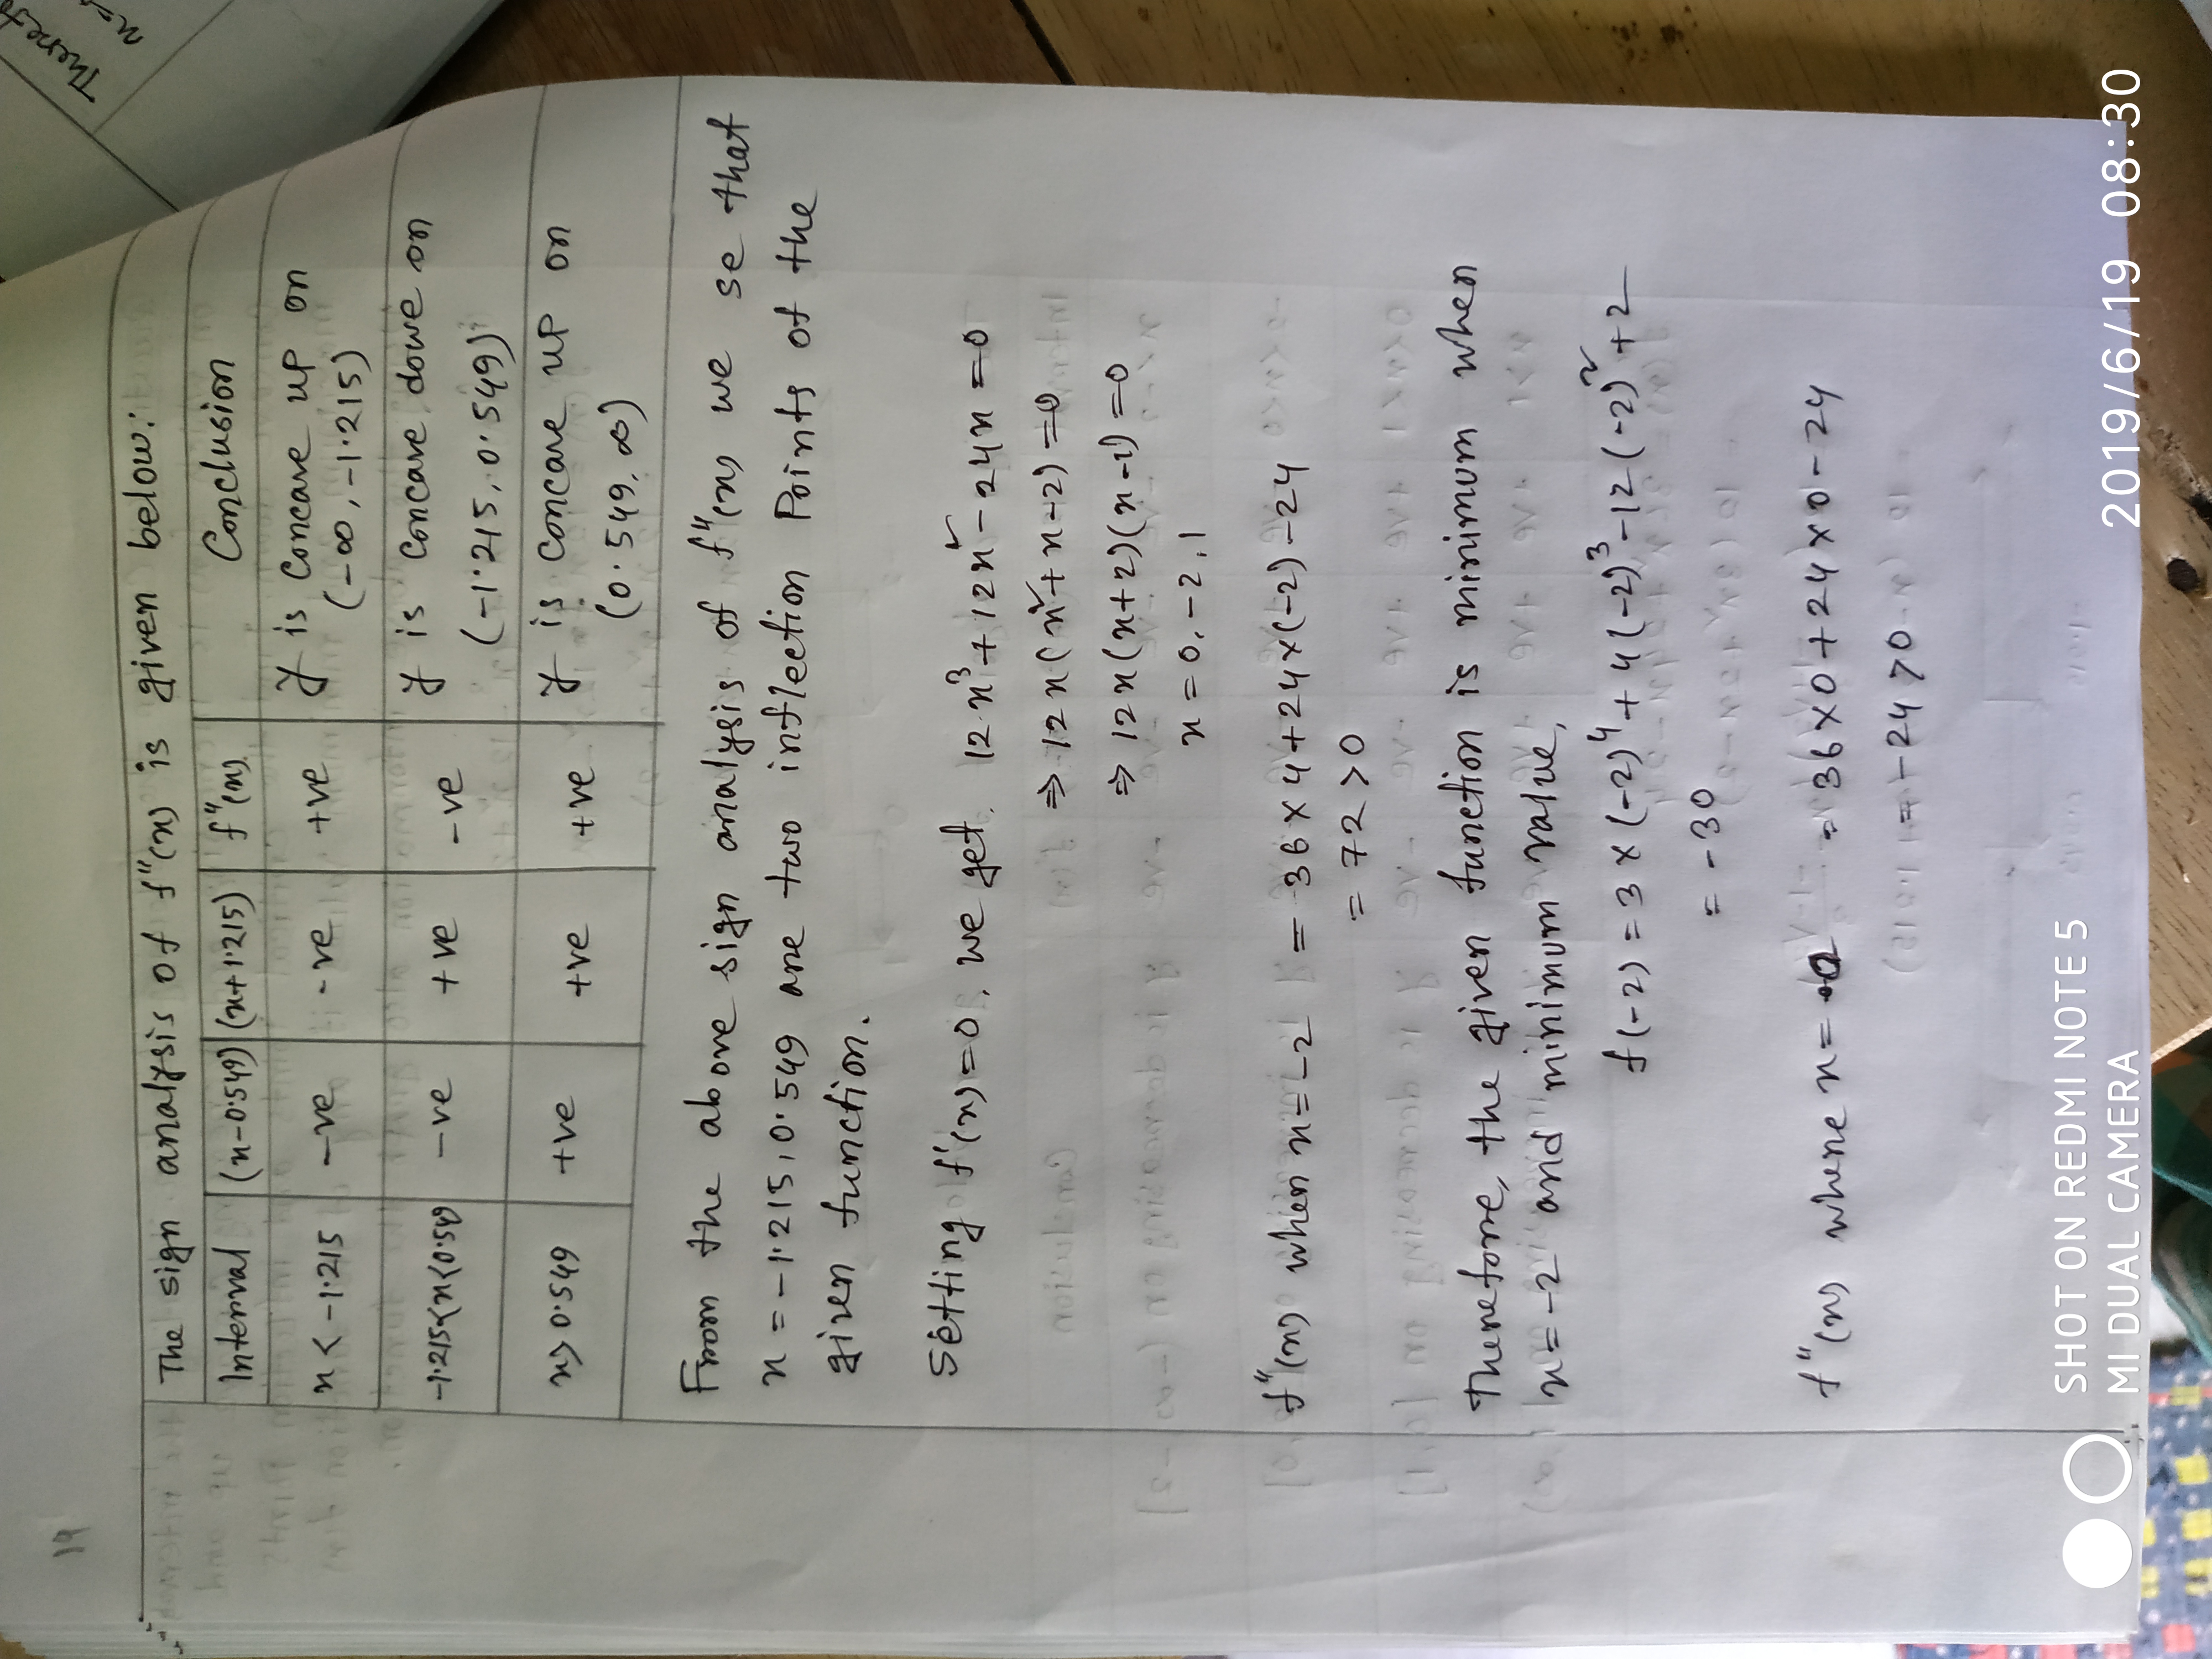 19
The sign analysis of f"(x) is given below:
Interval (x-0.549) (x+1.215) f"(x) Conclusion
x < -1.215 -ve -ve +ve y is concave up on
(-∞, -1.215)
-1.215<x<0.549 -ve +ve -ve y is concave dowe on
(-1.215, 0.549)
x> 0.549 +ve +ve +ve y is concave up on
(0.549, ∞)
From the above sign analysis of f"(x) we se that
x = -1.215, 0.549 are two inflection Points of the
given function.
Setting f'(x)=0, we get. 12x³+12x²-24x=0
⇒ 12x(x²+x-2)=0
⇒ 12x(x+2)(x-1)=0
x=0,-2,1
f"(x) when x=-2 = 36×4+24×(-2)-24
= 72>0
Therefore, the given function is minimum when
x=-2 and minimum value,
f(-2)=3×(-2)⁴+4(-2)³-12(-2)²+2
= -30
f"(x) where x= 0 = 36×0+24×0-24
= -24 >0
SHOT ON REDMI NOTE 5
MI DUAL CAMERA
2019/6/19 08:30